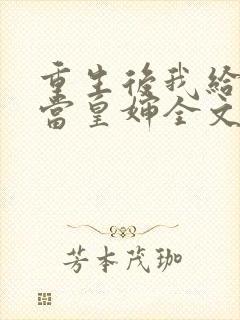 重生後我給
當皇婶全文
芳本茂珈